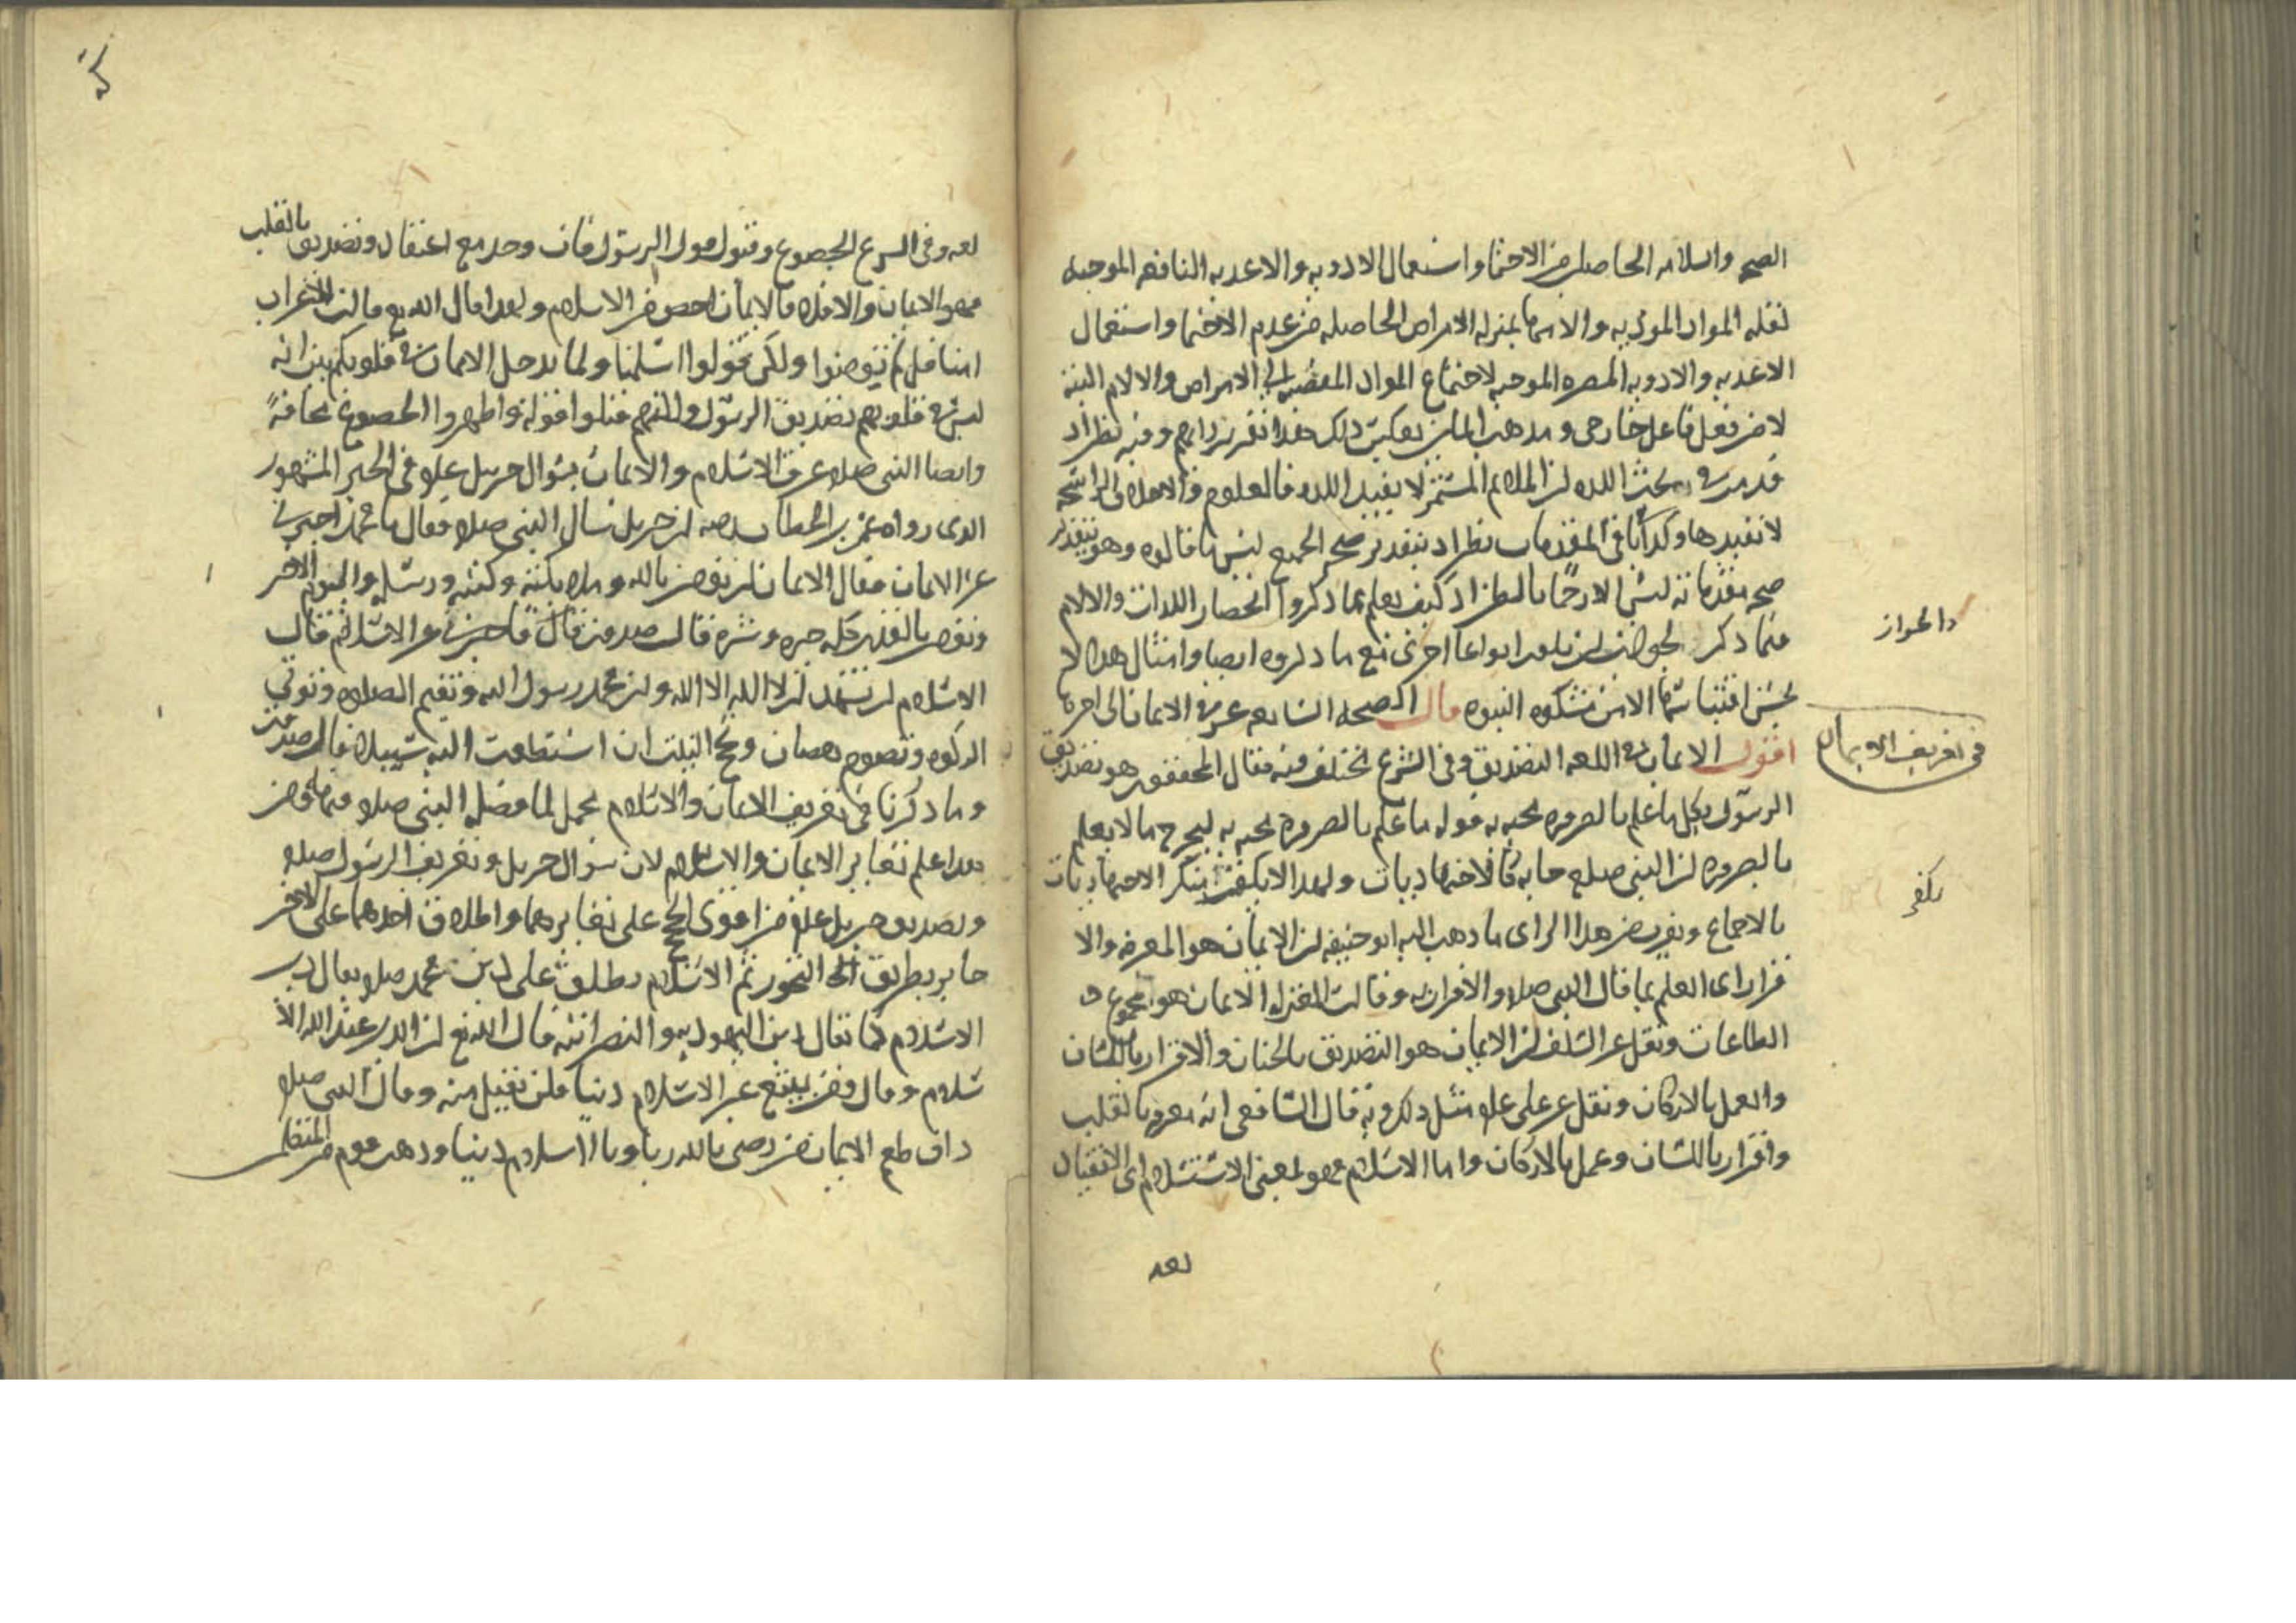 الصحه والسلامه الحاصله من الاحتما واستعمال الادويه والاغديه النافعه الموجبه
لقله المواد الموذيه والاسما بمنزله الامراض الحاصله من عدم الاحتما واستعمال
الاغديه والادويه المضره الموجبه لاجتماع المواد المفضيه الى الامراض والالام البته
لا من فعل فاعل خارجى ومذهب المليين بعكس ذلك هذا تقرير رايهم وفيه نظر اذ
قد مر فى بحث اللذه ان الملايم المستمر لا يفيد اللذه فالعلوم والاخلاق الراسخه
لا تفيدها وكذا باقى المقدمات نظر اذ بتقدير صحه الجميع ليس ما قالوه وهو بتقدير
صحه مقدماته ليس الا رجما بالظن اذ كيف يعلم بما ذكروا انحصار اللذات والالام
فيما ذكر لجواز ان يكون انواعا اخرى مع ما ذكروه ايضا وامثال هذا لا
يحسن اقتباسها الا من مشكوه النبوه قال الصحيفه السابعه عشر فى الايمان الى اخره
اقول الايمان فى اللغه التصديق وفى الشرع مختلف فيه فقال المحققون هو تصديق
الرسول بكل ما علم بالضروره مجيه به قوله ما علم بالضروره مجيه به ليخرج ما لا يعلم
بالضروره ان النبى صلعم جا به كالاجتهاديات ولهذا لا يكفر منكر الاجتهاديات
بالاجماع ويقرب من هذا الراى ما ذهب اليه ابو حنيفه ان الايمان هو المعرفه والا
قرار اى العلم بما قال النبى صلعم والاقرار به وقالت المعتزله الايمان هو مجموع
الطاعات ونقل عن السلف ان الايمان هو التصديق بالجنان والاقرار باللسان
والعمل بالاركان ونقل عن على علم مثل ذلك وبه قال الشافعى انه معرفه بالقلب
واقرار باللسان وعمل بالاركان واما الاسلام فهو لمعنى الاستسلام اى الانقياد
لغه
دالجواز
فى تعريف الايمان
يكفر
لغه وفى الشرع الخضوع وقبول قول الرسول فان وجد مع اعتقاد وتصديق بالقلب
فهو الايمان والا فلا فالايمان اخص من الاسلام ولهذا قال الله تع قالت الاعراب
امنا قل لم تومنوا ولكن قولوا اسلمنا ولما يدخل الايمان فى قلوبكم بين انه
ليس فى قلوبهم تصديق الرسول وانهم قبلوا قوله واظهروا الخضوع مخافةً
وايضا النبى صلعم عرف الاسلام والايمان بسوال جبريل علم فى الخبر المشهور
الذى رواه عمر بن الخطاب رضه ان جبريل سال النبى صلعم فقال يا محمد اخبرنى
عن الايمان فقال الايمان ان تومن بالله وملايكته وكتبه ورسله واليوم الاخر
وتومن بالقدر كله خيره وشره قال صدقت قال فاخبرنى عن الاسلام قال
الاسلام ان تشهد ان لا اله الا الله وان محمد رسول الله وتقيم الصلاه وتوتى
الزكوه وتصوم رمضان وتحج البيت ان استطعت اليه سبيلا قال صدقت
وما ذكرنا فى تعريف الايمان والاسلام مجمل لما فصل النبى صلعم فيهما ومن
هذا علم تغاير الايمان والاسلام لان سوال جبريل وتعريف الرسول صلعم
وتصديق جبريل علم من اقوى الحجج على تغايرهما واطلاق احدهما على الاخر
جايز بطريق التجوز ثم الاسلام يطلق على دين محمد صلعم يقال دين
الاسلام كما يقال دين اليهوديه والنصرانيه قال الله تع ان الدين عند الله الا
سلام وقال ومن يبتغ غير الاسلام دينا فلن يقبل منه وقال النبى صلعم
ذاق طعم الايمان من رضى بالله ربا وبالاسلام دينا وذهب قوم من